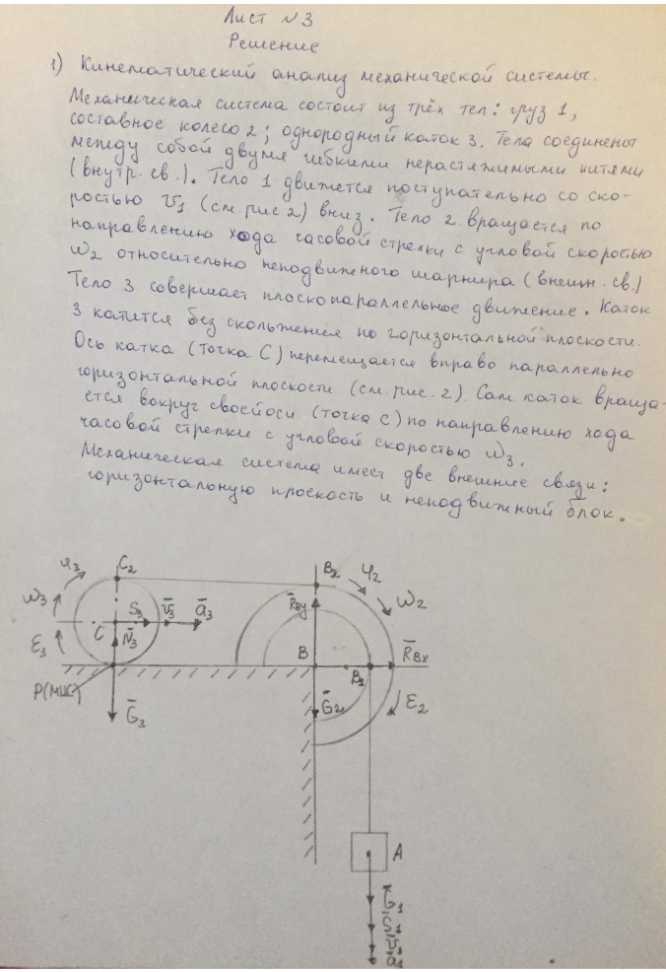 Лист №3
Решение
1) Кинематический анализ механической системы.
Механическая система состоит из трёх тел: груз 1,
составное колесо 2; однородный каток 3. Тела соединены
между собой двумя гибкими нерастяжимыми нитями
(внутр. св.). Тело 1 движется поступательно со ско-
ростью v1 (см. рис 2) вниз. Тело 2 вращается по
направлению хода часовой стрелки с угловой скоростью
ω2 относительно неподвижного шарнира (внешн. св.)
Тело 3 совершает плоскопараллельное движение. Каток
3 катится без скольжения по горизонтальной плоскости.
Ось катка (точка С) перемещается вправо параллельно
горизонтальной плоскости (см. рис. 2). Сам каток враща-
ется вокруг своей оси (точка С) по направлению хода
часовой стрелки с угловой скоростью ω3.
Механическая система имеет две внешние связи:
горизонтальную плоскость и неподвижный блок.
φ3 C2 B2 φ2
ω3 R̅By ω2
S3 v̅3 a̅3
C N̅3
ε3 B B1 R̅Bx
P(МЦС) G̅2 ε2
G̅3
A
G̅1
S1
v̅1
a̅1